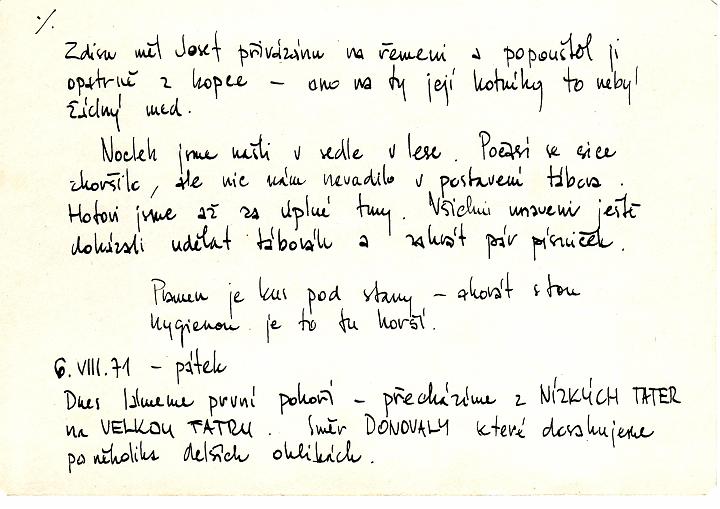 ·/.
Zdisu měl Josef přivázánu na řemeni a popouštěl ji
opatrně z kopce – ono na ty její kotníky to nebyl
žádný med.
Nocleh jsme našli v sedle v lese. Počasí se sice
zhoršilo, ale nic nám nevadilo v postavení tábora.
Hotovi jsme až za úplné tmy. Všichni unaveni ještě
dokázali udělat táborák a zahrát pár písniček.
Pramen je kus pod stany – akorát s tou
hygienou je to tu horší.
6. VIII. 71 – pátek
Dnes lámeme první pohoří – přecházíme z NÍZKÝCH TATER
na VELKOU TATRU. Směr DONOVALY které dosahujeme
po několika delších oklikách.